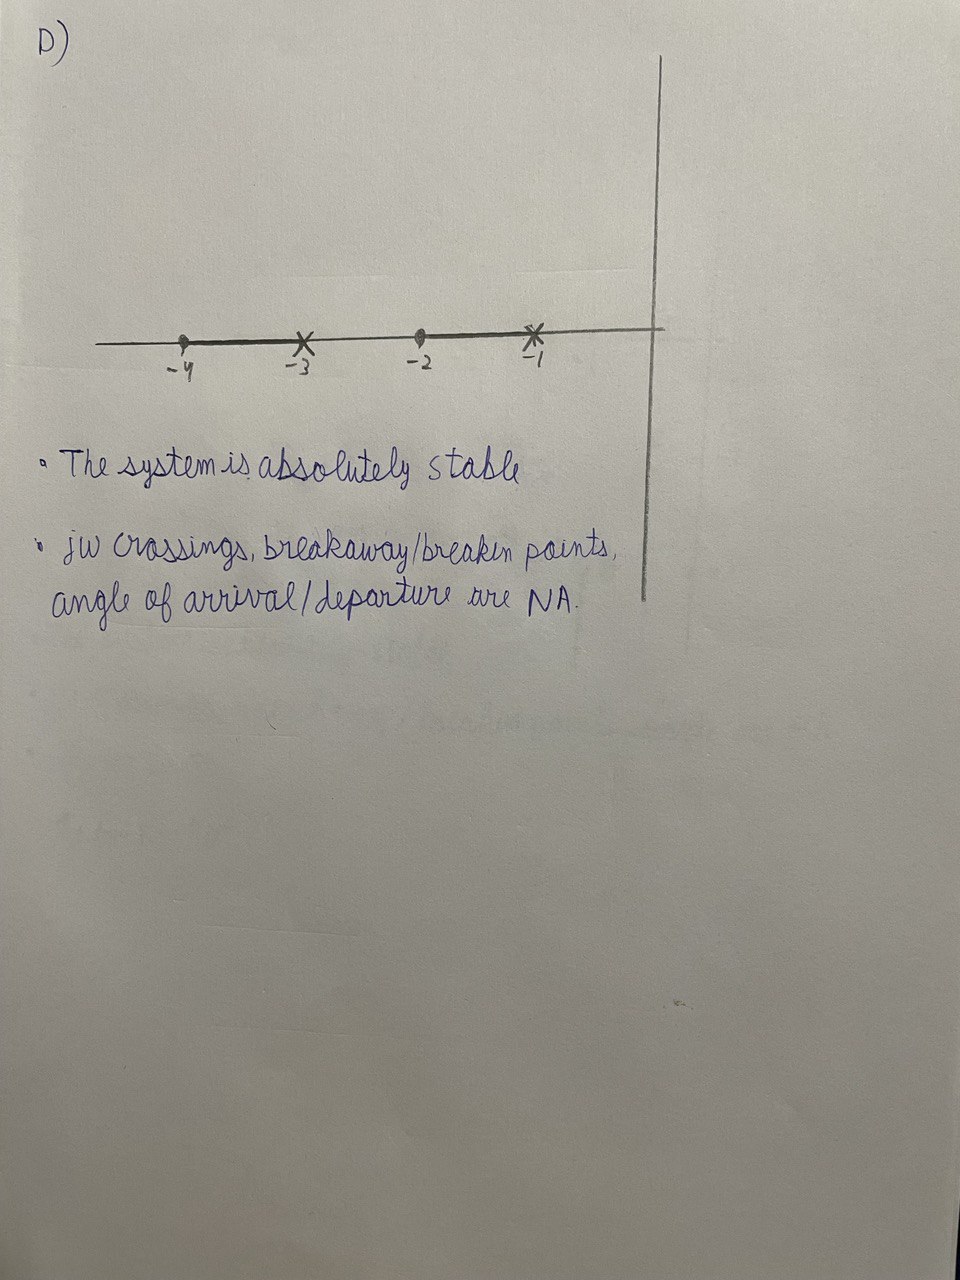 D)
-4 -3 -2 -1
• The system is absolutely stable
• jw crossings, breakaway/breakin points,
angle of arrival/departure are NA.